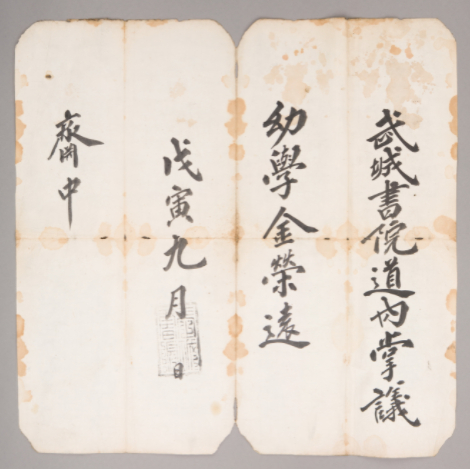 武城書院道內掌議
幼學金榮遠
戊寅九月 日
齋中